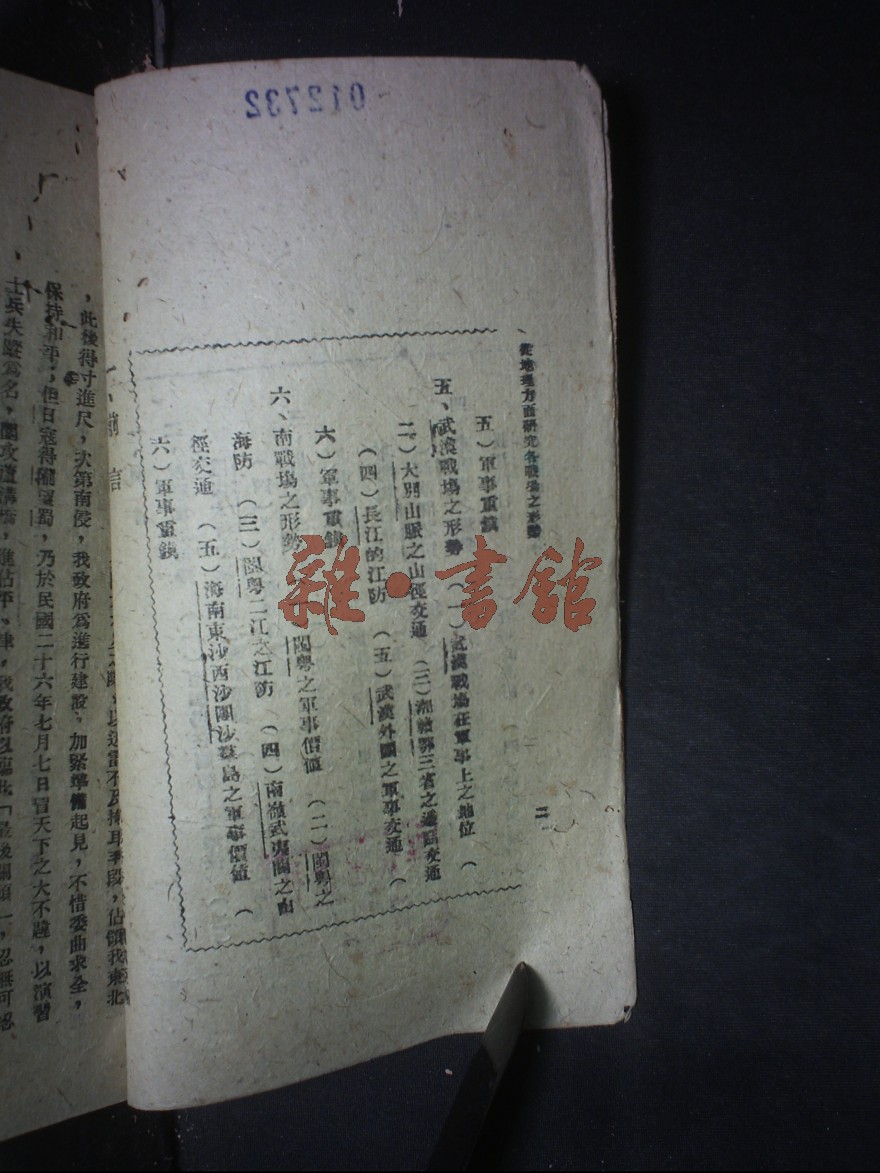 012732
從地理方面研究各戰場之形勢
二
五)軍事重鎮
五、武漢戰場之形勢 (一)武漢戰場在軍事上之地位 (
二)大別山脈之山徑交通 (三)湘贛鄂三省之通路交通
(四)長江的江防 (五)武漢外圍之軍事交通 (
六)軍事重鎮
六、南戰場之形勢 (一)閩粵之軍事價値 (二)閩粵之
海防 (三)閩粵二江之江防 (四)南嶺武夷間之山
徑交通 (五)海南東沙西沙團沙羣島之軍事價値 (
六)軍事重鎮
雜·書館
一、前言
以迅雷不及掩耳手段,佔領我東北
,此後得寸進尺,次第南侵,我政府爲進行建設,加緊準備起見,不惜委曲求全,
保持和平,但日寇得隴望蜀,乃於民國二十六年七月七日冒天下之大不韙,以演習
士兵失蹤爲名,圍攻蘆溝橋,進佔平、津,我政府以臨此「最後關頭」,忍無可忍